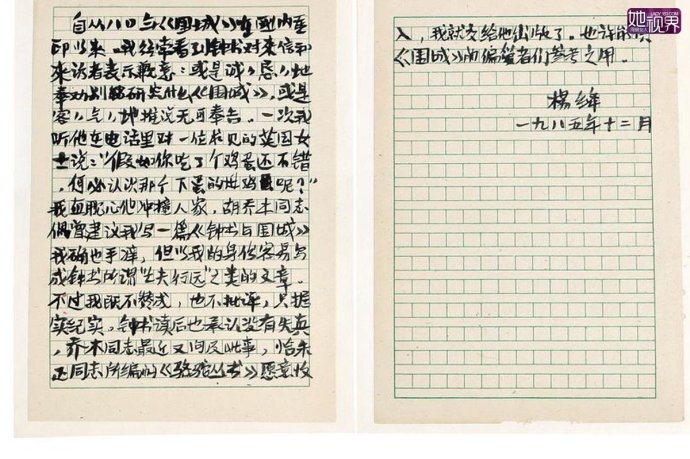 自从八〇年《围城》在国内重
印以来，我经常看到钟书对来信和
来访者表示歉意：或是诚诚恳恳地
奉劝别研究什么《围城》，或是
客客气气地推说无可奉告。一次我
听他在电话里对一位求见的英国女
士说："假如你吃了个鸡蛋还不错
，何必认识那个下蛋的母鸡呢？"
我直耽心他冲撞人家，胡乔木同志
偶曾建议我写一篇《钟书与围城》
我确也手痒，但以我的身份容易写
成钟书所谓"亡夫行述"之类的文章。
不过我既不赞成，也不批评，只据
实纪实。钟书读后也承认没有失真，
乔木同志最近又问及此事，恰朱
正同志所编的《骆驼丛书》愿意收
入，我就交给他出版了。也许能供
《围城》的偏爱者们参考之用。
杨绛
一九八五年十二月
她视界